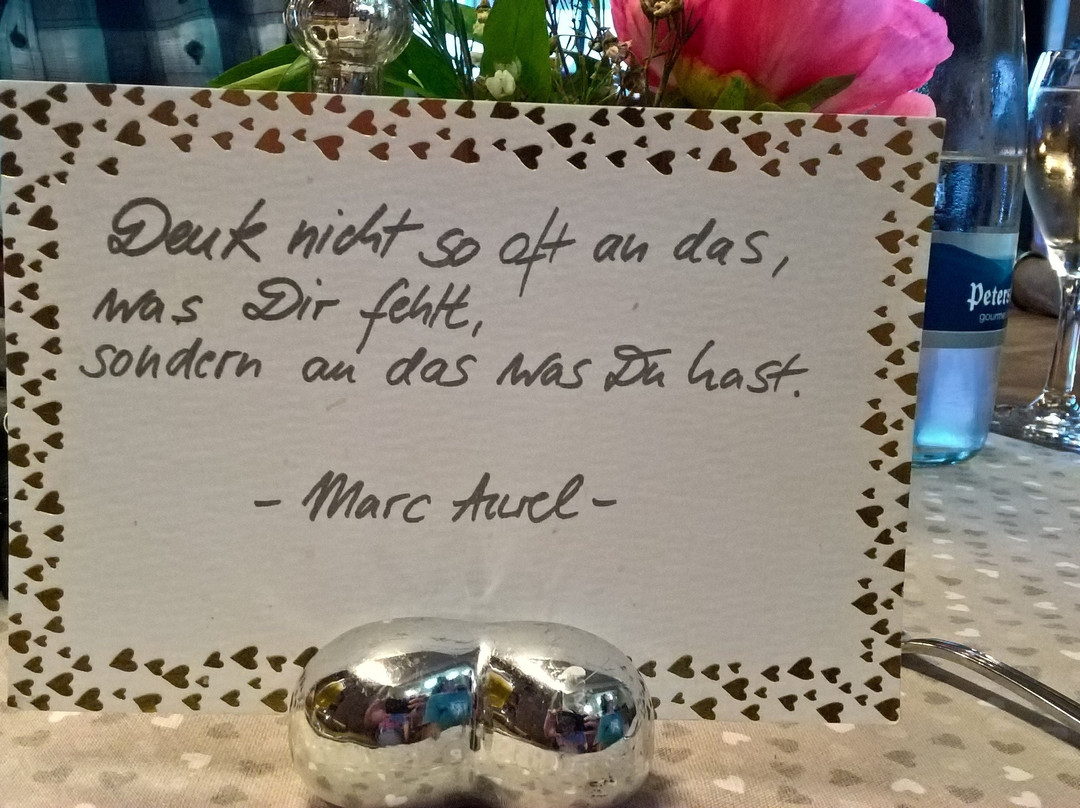 Denk nicht so oft an das,
was Dir fehlt,
sondern an das was Du hast.
- Marc Aurel -
Peters
gourme